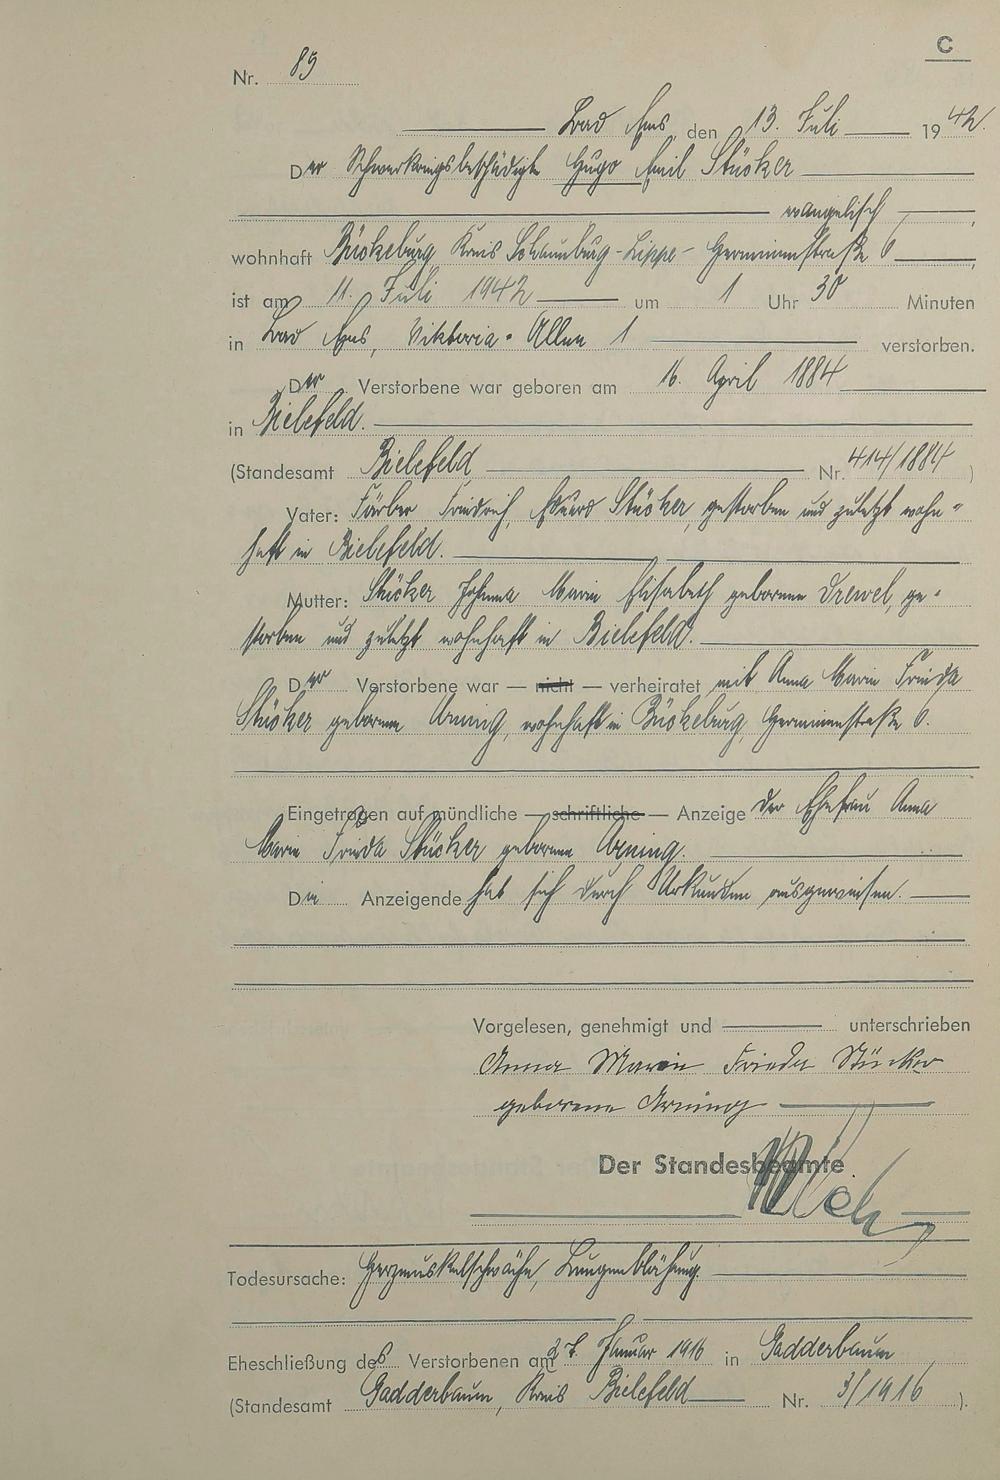 C
Nr. 89
Bad Ems, den 13. Juli 1942.
Der Schwerkriegsbeschädigte Hugo Emil Stücker
evangelisch,
wohnhaft Bückeburg Kreis Schaumburg-Lippe- Germinenstraße 6,
ist am 11. Juli 1942 um 1 Uhr 30 Minuten
in Bad Ems, Viktoria-Allee 1 verstorben.
Der Verstorbene war geboren am 16. April 1884
in Bielefeld.
(Standesamt Bielefeld Nr. 414/1884)
Vater: Färber Friedrich, Eduard Stücker, gestorben und zuletzt wohn-
haft in Bielefeld.
Mutter: Stücker Johanna Marie Elisabeth geborene Drewel, ge-
storben und zuletzt wohnhaft in Bielefeld.
Der Verstorbene war — nicht — verheiratet mit Anna Marie Frieda
Stücker geborene Arning, wohnhaft in Bückeburg, Germinenstraße 6.
Eingetragen auf mündliche — schriftliche — Anzeige der Ehefrau Anna
Marie Frieda Stücker geborene Arning.
Die Anzeigende hat sich durch Urkunden ausgewiesen.
Vorgelesen, genehmigt und unterschrieben
Anna Marie Frieda Stücker
geborene Arning
Der Standesbeamte
Todesursache: Herzmuskelschwäche, Lungenblähung
Eheschließung des Verstorbenen am 27. Januar 1916 in Gadderbaum
(Standesamt Gadderbaum, Kreis Bielefeld Nr. 3/1916).